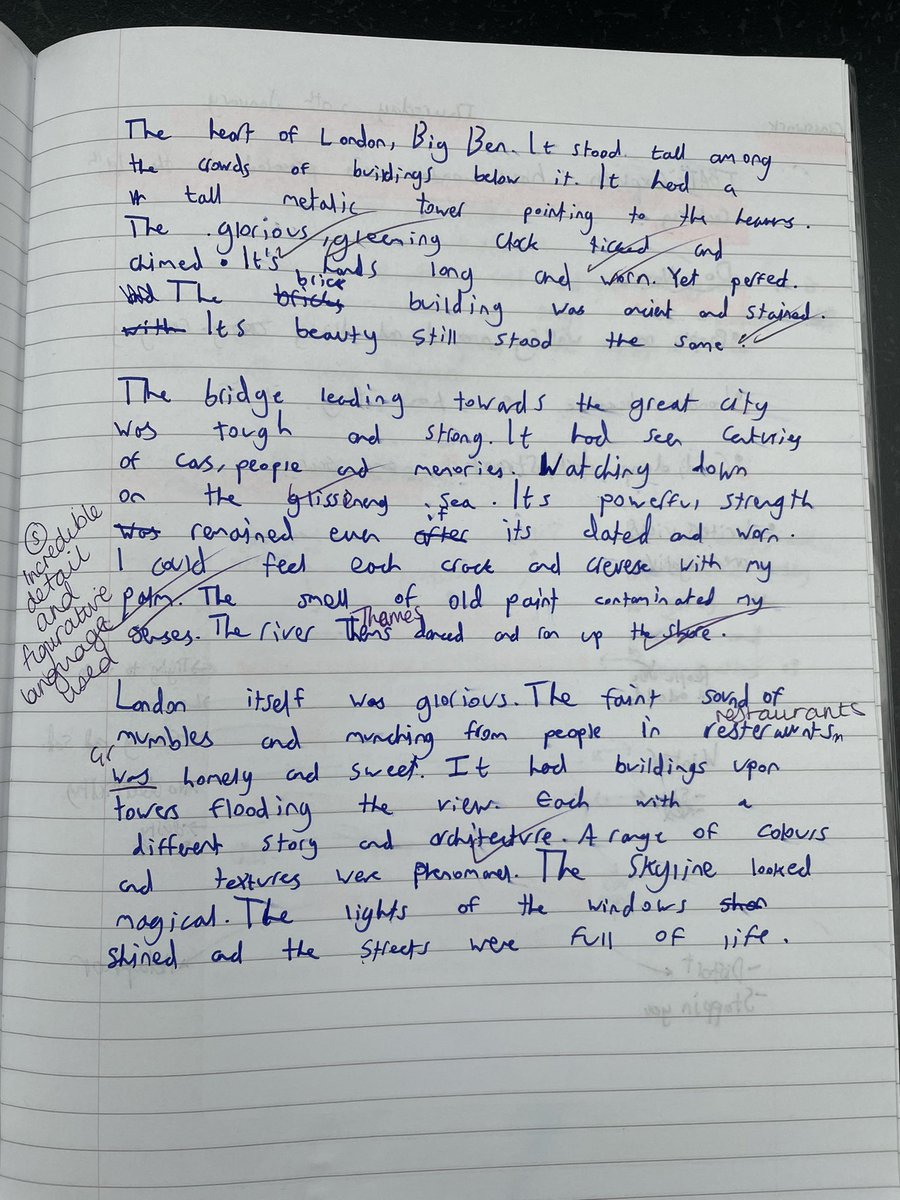 The heart of London, Big Ben. It stood tall among
the crowds of buildings below it. It had a
tall metalic tower pointing to the heavens.
The glorious, gleening clock ticked and
chimed. It's hands long and worn. Yet perfect.
brick
The bricks building was ancient and stained.
with Its beauty still stood the same.
The bridge leading towards the great city
was tough and strong. It had seen centuries
of cars, people and memories. Watching down
on the glisseneng sea. Its powerful strength
if
was remained even after its dated and worn.
I could feel each crack and crevese with my
palm. The smell of old paint contaminated my
Thames
senses. The river Thems danced and ran up the shore.
S
Incredible
detail
and
figurative
language
used
London itself was glorious. The faint sound of
restaurants
mumbles and munching from people in resteraunts
Gr
was homely and sweet. It had buildings upon
towers flooding the view. Each with a
different story and architecture. A range of colours
and textures were phenomanel. The skyline looked
magical. The lights of the windows shon
shined and the streets were full of life.